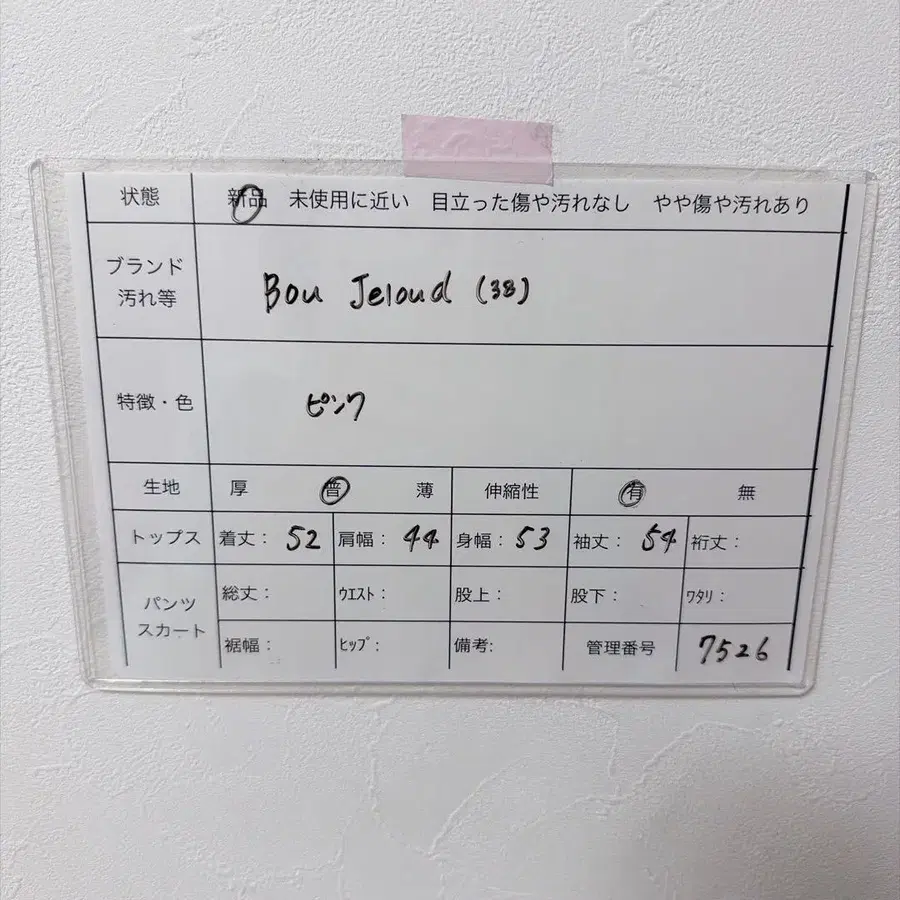 状態 新品 未使用に近い 目立った傷や汚れなし やや傷や汚れあり
ブランド
汚れ等
Bou Jeloud (38)
特徴・色 ピンク
生地 厚 普 薄 伸縮性 有 無
トップス 着丈: 52 肩幅: 44 身幅: 53 袖丈: 54 裄丈:
パンツ
スカート
総丈: ウエスト: 股上: 股下: ワタリ:
裾幅: ヒップ: 備考: 管理番号 7526